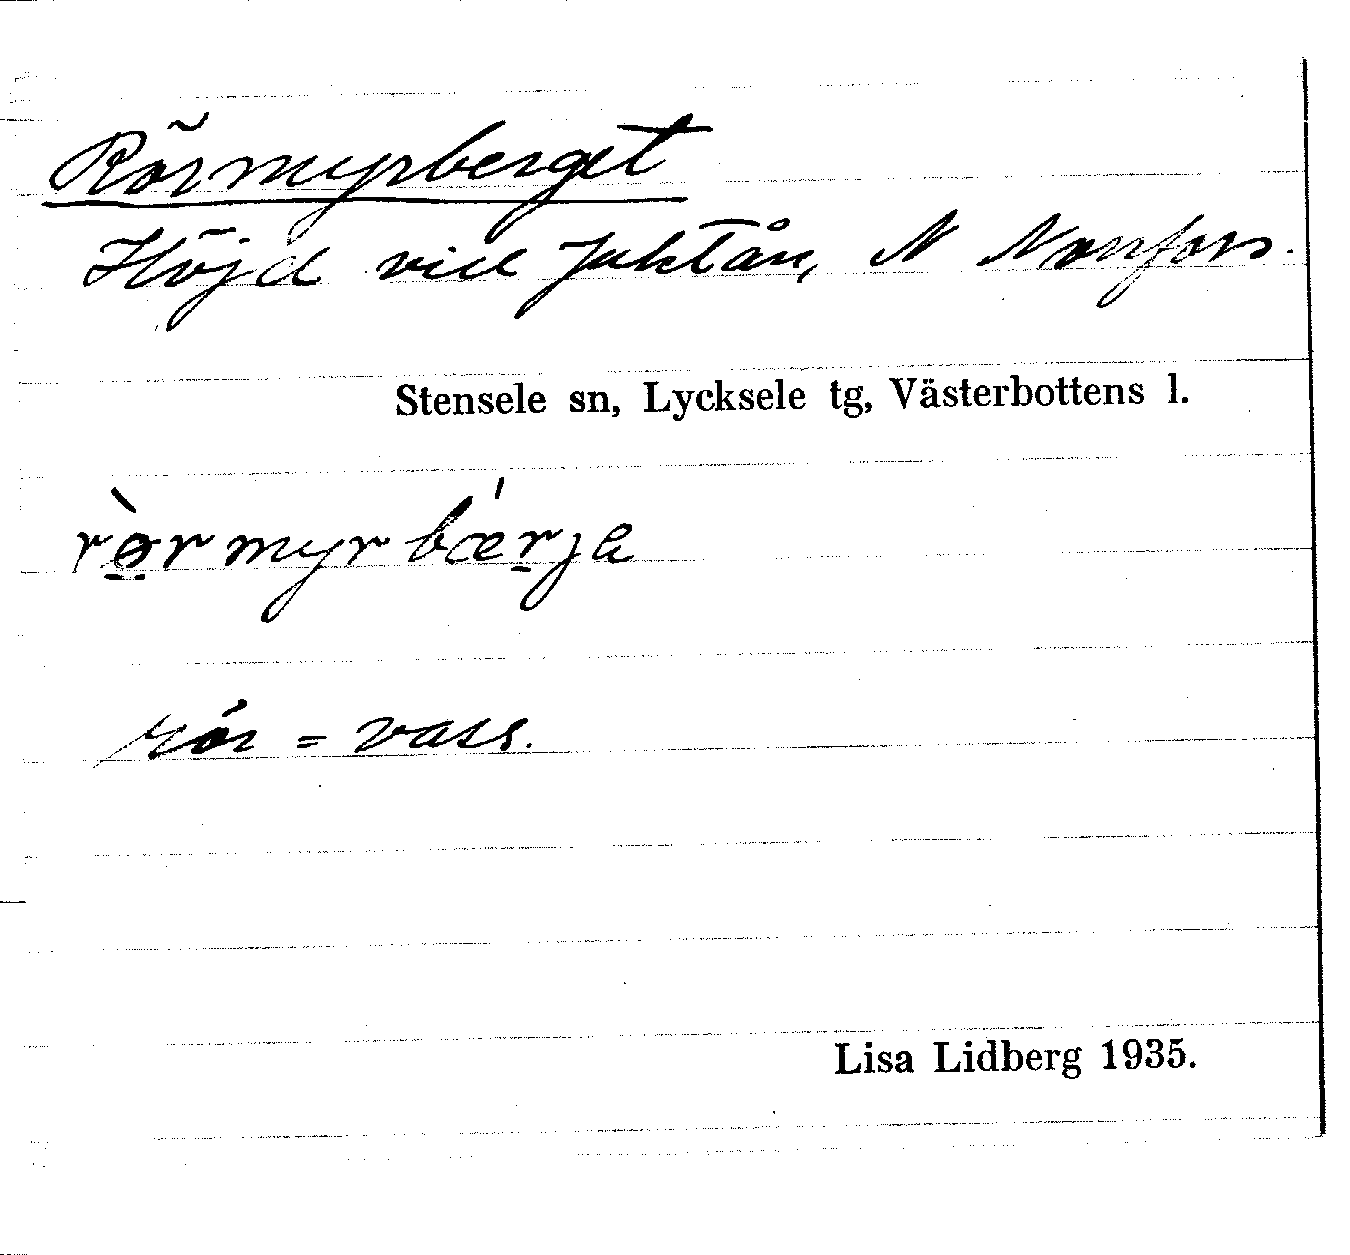 Rörmyrberget
Höjd vid Juktån, N Norrfors.
Stensele sn, Lycksele tg, Västerbottens l.
rø̱̀rmyrbǽṟja
rör = vass.
Lisa Lidberg 1935.